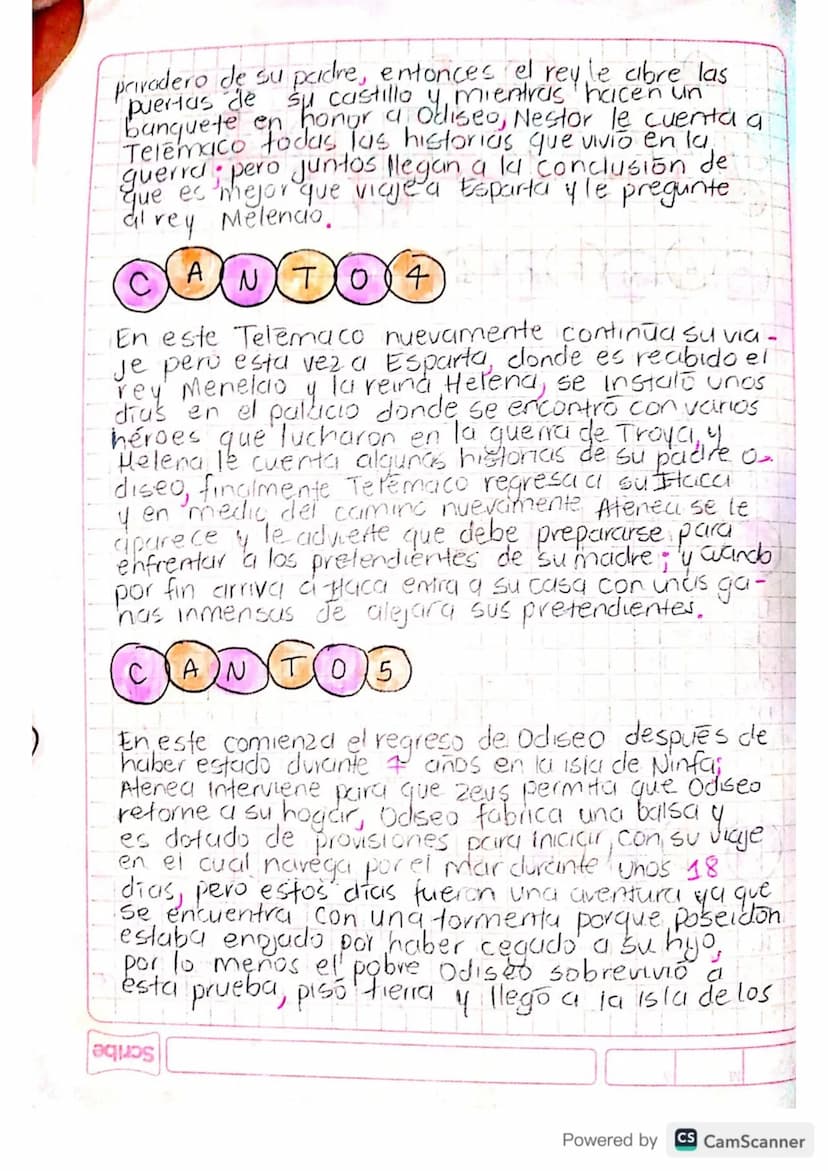 privadero de su padre, entonces el rey le abre las
puertas de su castillo y mientras hacen un
banquete en honor a Odiseo, Nestor le cuenta a
Telēmaco todas las historias que vivió en la
guerra; pero juntos llegan a la conclusión de
que es mejor que viaje a Esparta y le pregunte
al rey Melenao.
CANTO 4
En este Telēmaco nuevamente continūa su via-
je pero esta vez a Esparta, donde es recibido el
rey Menelao y la reina Helena, se instaló unos
días en el palacio donde se encontró con varios
héroes que lucharon en la guerra de Troya, y
Helena le cuenta algunas historias de su padre O-
diseo, finalmente Telēmaco regresa a su Itaca
y en medio del camino nuevamente Atenea se le
aparece y le advierte que debe prepararse para
enfrentar a los pretendientes de su madre; y cuando
por fin arriva a Itaca entra a su casa con unas ga-
nas inmensas de alejar a sus pretendientes.
CANTO 5
En este comienza el regreso de Odiseo despuēs de
haber estado durante 7 años en la isla de Ninfa;
Atenea interviene para que Zeus permita que Odiseo
retorne a su hogar, Odiseo fabrica una balsa y
es dotado de provisiones para iniciar con su viaje
en el cual navega por el mar durante unos 18
días, pero estos días fueron una aventura ya que
se encuentra con una tormenta porque Poseidōn
estaba enojado por haber cegado a su hijo,
por lo menos el pobre Odiseo sobrevivió a
esta prueba, pisó tierra y llegó a la isla de los
Scribe
Powered by CS CamScanner